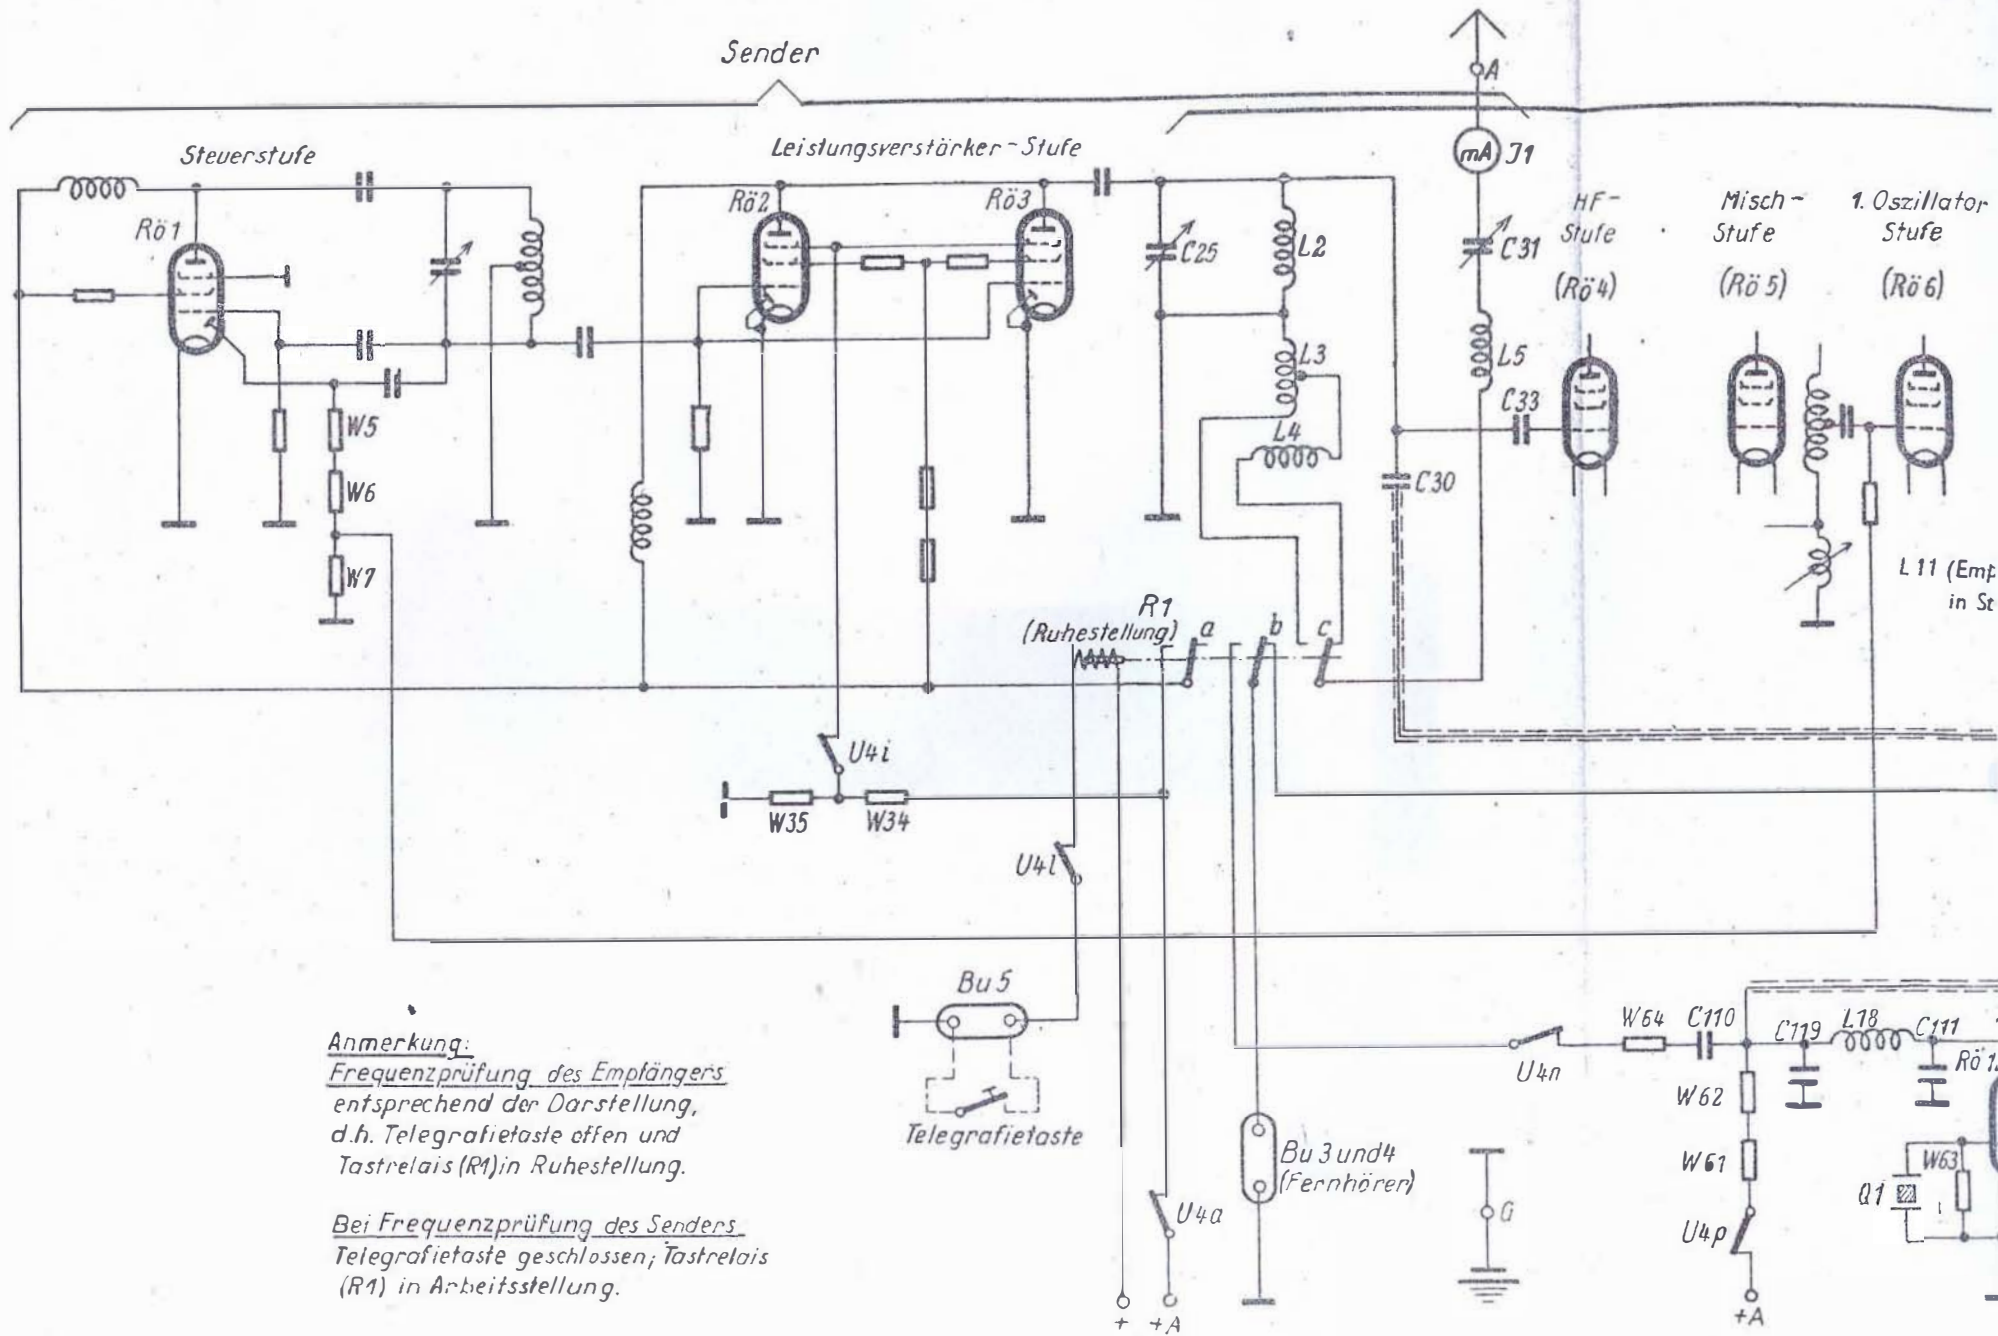 Sender
A
Steuerstufe
Leistungsverstärker-Stufe
mA J1
Rö1
Rö2
Rö3
C25
L2
C31
HF-
Stufe
(Rö4)
Misch-
Stufe
(Rö5)
1. Oszillator
Stufe
(Rö6)
L3
L5
C33
L4
W5
W6
W7
C30
L11 (Emp
in St
R1
(Ruhestellung)
a
b
c
U4i
W35
W34
U4l
Bu5
Telegrafietaste
Anmerkung:
Frequenzprüfung des Empfängers
entsprechend der Darstellung,
d.h. Telegrafietaste offen und
Tastrelais (R1) in Ruhestellung.
Bei Frequenzprüfung des Senders
Telegrafietaste geschlossen; Tastrelais
(R1) in Arbeitsstellung.
U4a
+
+A
Bu3und4
(Fernhörer)
G
U4n
W64
C110
C119
L18
C111
Rö12
W62
W61
U4p
+A
Q1
W63